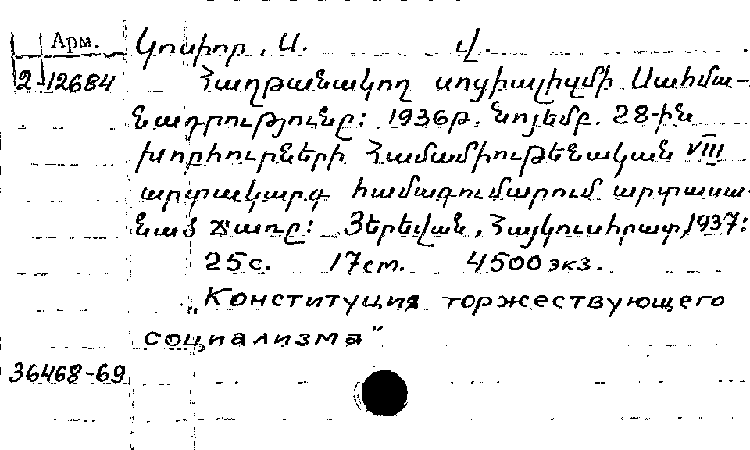 Арм.
Կոսիոր, Ս. Վ.
2-12684 Հաղթանակող սոցիալիզմի Սահմա-
նադրությունը: 1936թ. նոյեմբ. 28-ին
խորհուրների Համամիութենական VIII
արտակարգ համագումարում արտասա-
նած ճառը: Յերեվան, Հայկուսհրատ, 1937:
25с. 17ст. 4500 экз.
„Конституция торжествующего
социализма"
36468-69